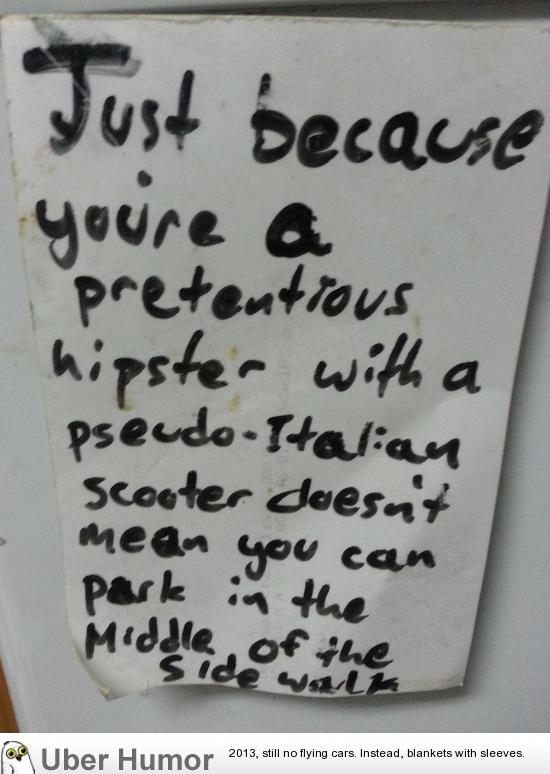 Just because
you're a
pretentious
hipster with a
pseudo-Italian
scooter doesn't
mean you can
park in the
Middle of the
Sidewalk
Uber Humor 2013, still no flying cars. Instead, blankets with sleeves.